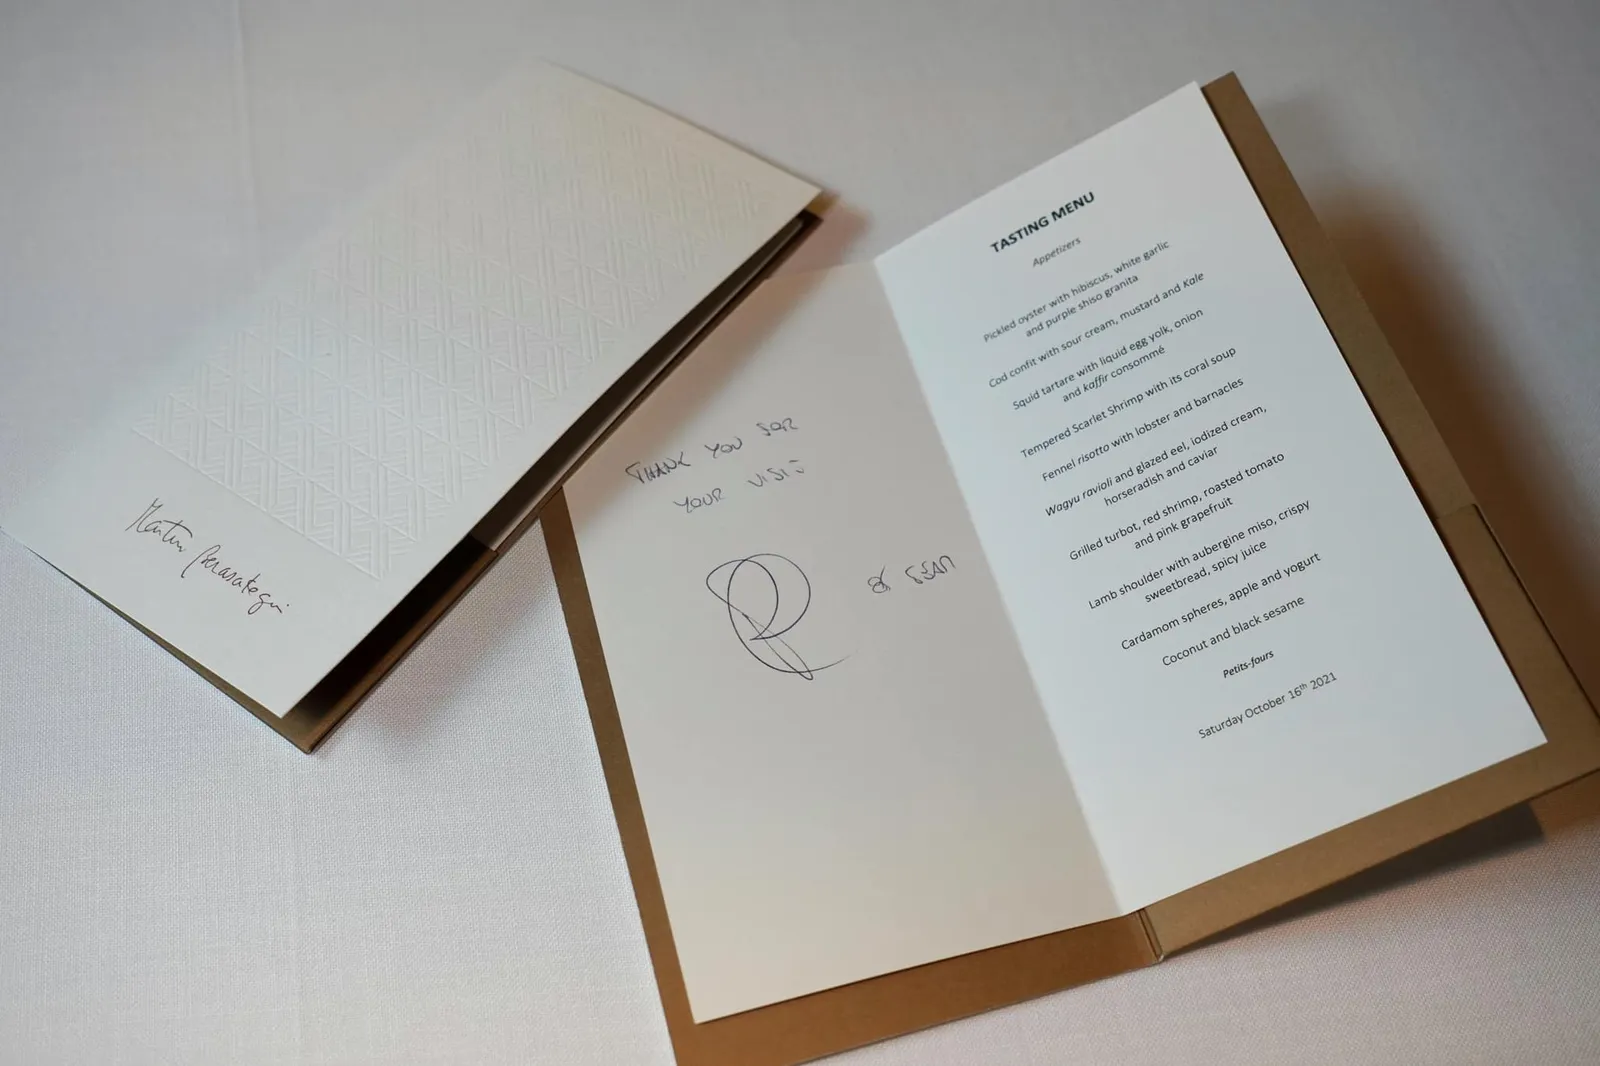 Martín Berasategui
THANK YOU FOR
YOUR VISIT
& TEAM
TASTING MENU
Appetizers
Pickled oyster with hibiscus, white garlic
and purple shiso granita
Cod confit with sour cream, mustard and Kale
Squid tartare with liquid egg yolk, onion
and kaffir consommé
Tempered Scarlet Shrimp with its coral soup
Fennel risotto with lobster and barnacles
Wagyu ravioli and glazed eel, iodized cream,
horseradish and caviar
Grilled turbot, red shrimp, roasted tomato
and pink grapefruit
Lamb shoulder with aubergine miso, crispy
sweetbread, spicy juice
Cardamom spheres, apple and yogurt
Coconut and black sesame
Petits-fours
Saturday October 16th 2021